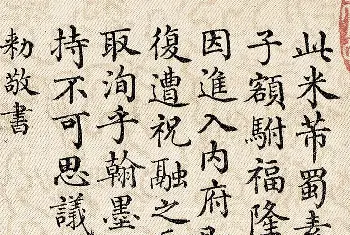 此米芾蜀素
子額駙福隆
因進入内府
復遭祝融之
取洵乎翰墨
持不可思議
勑敬書